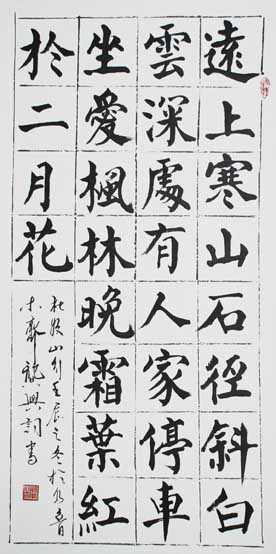 遠上寒山石徑斜白
雲深處有人家停車
坐愛楓林晚霜葉紅
於二月花
杜牧山行壬辰之冬於
木齋 興書